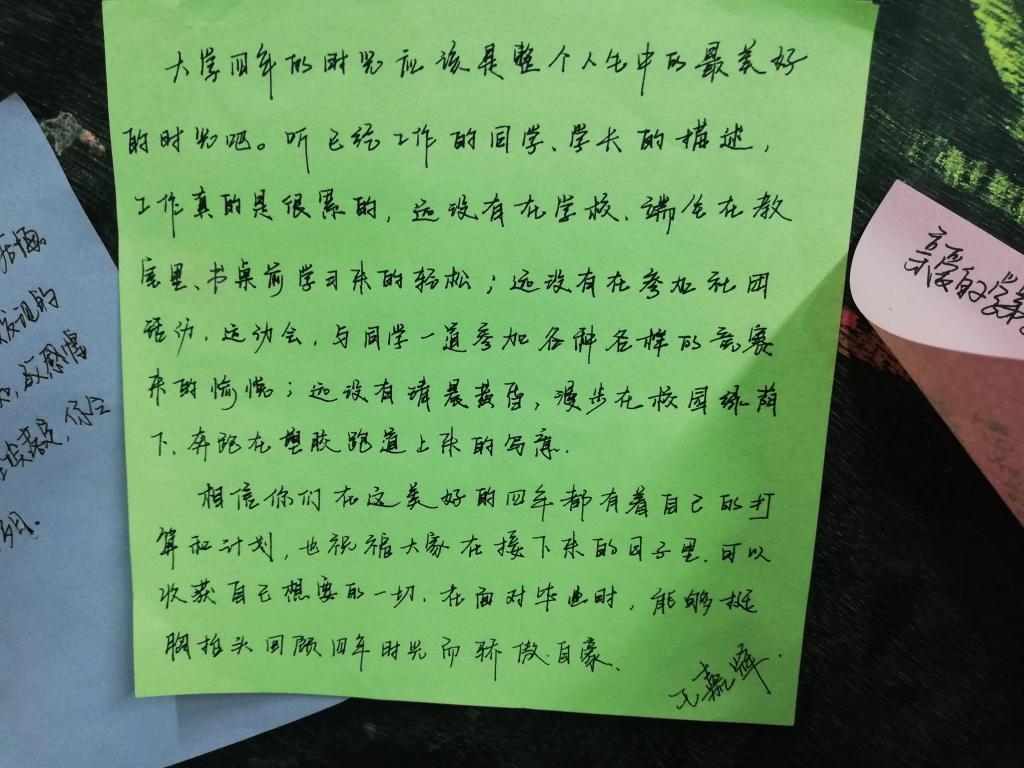 大学四年的时光应该是整个人生中的最美好
的时光吧。听已经工作的同学、学长的描述，
工作真的是很累的，远没有在学校、端坐在教
室里、书桌前学习来的轻松；远没有在参加社团
活动，运动会，与同学一道参加各种各样的竞赛
来的愉悦；远没有清晨黄昏，漫步在校园绿荫
下、奔跑在塑胶跑道上来的写意.
相信你们在这美好的四年都有着自己的打
算和计划，也祝福大家在接下来的日子里.可以
收获自己想要的一切.在面对毕业时，能够挺
胸抬头回顾四年时光而骄傲自豪.
亲爱的学弟
发现的